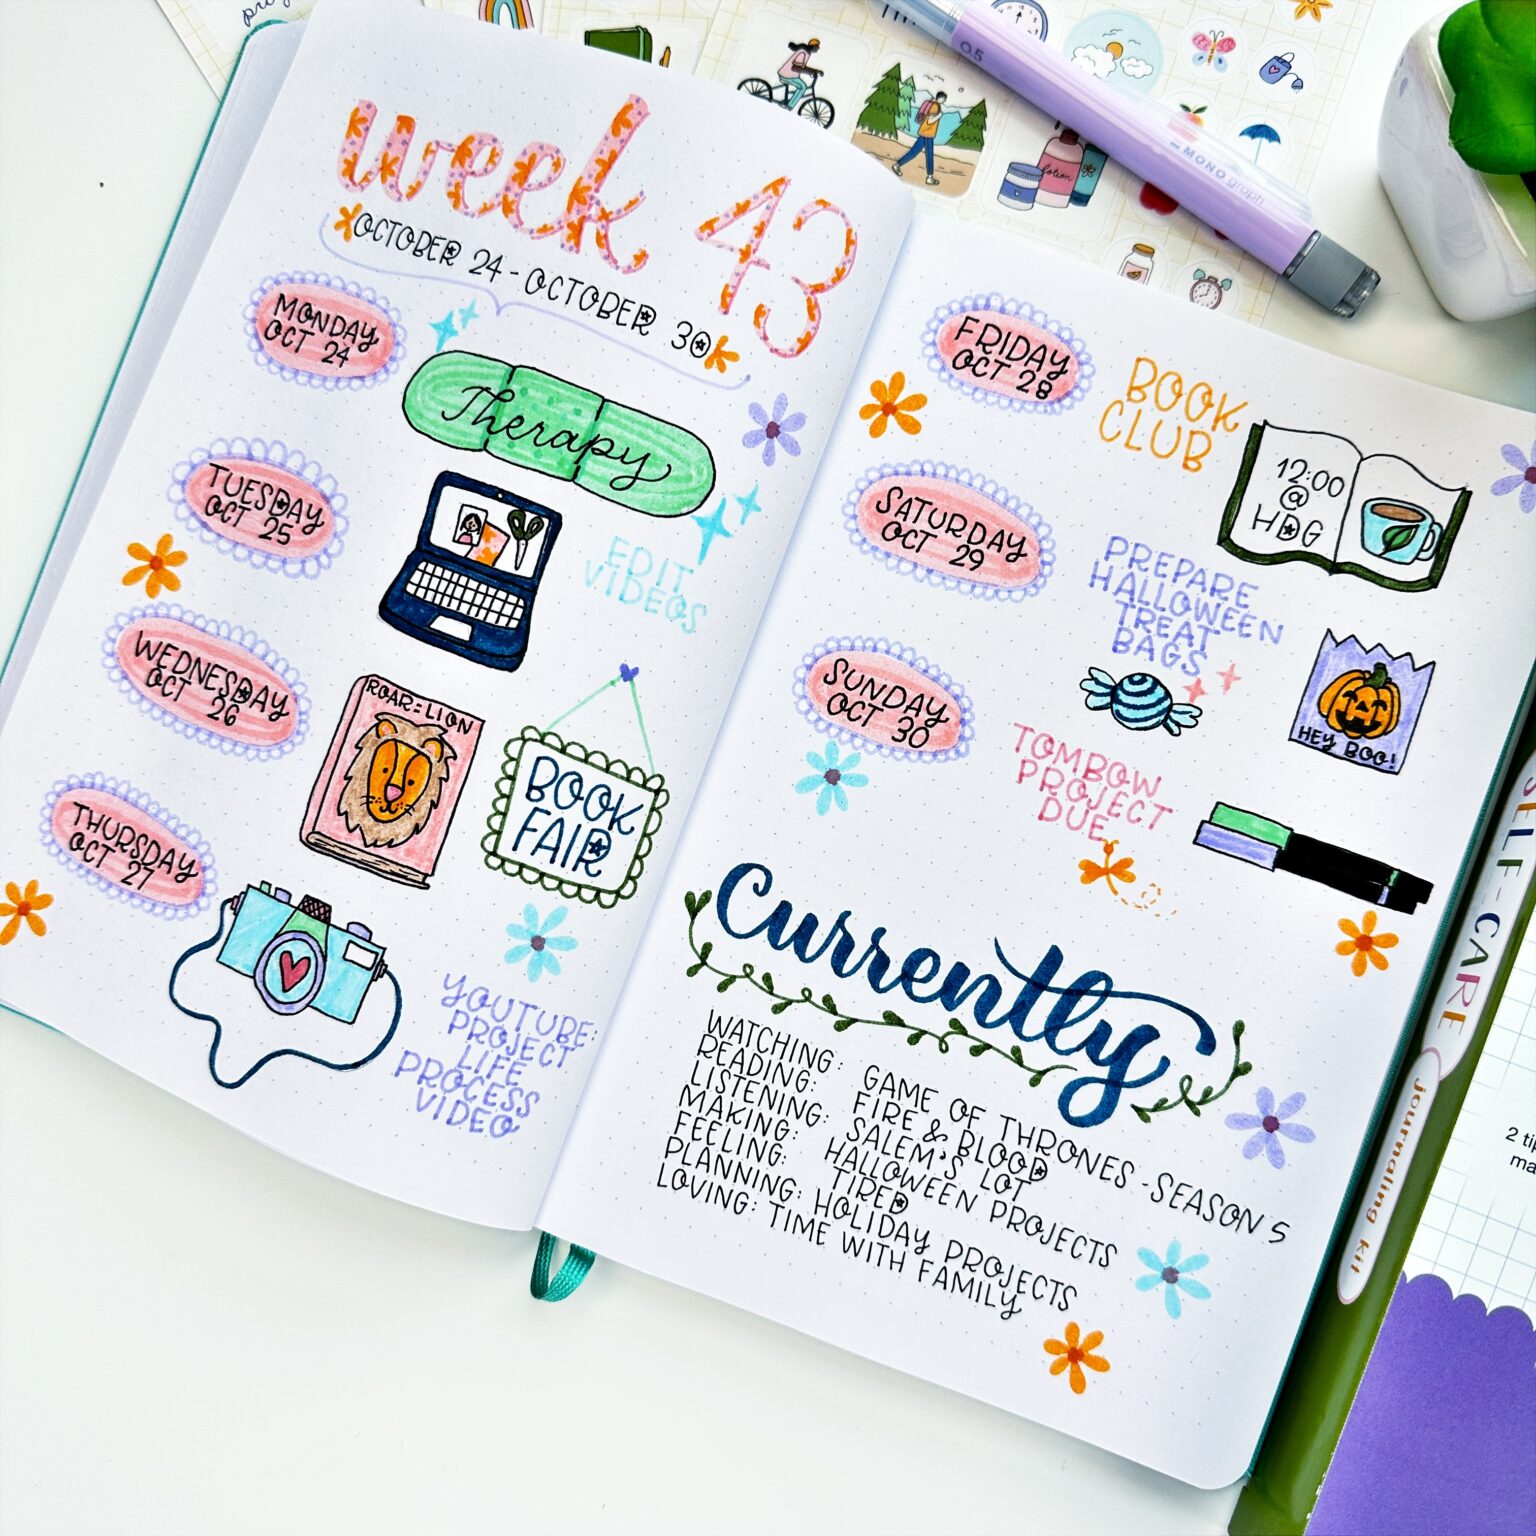 week 43
OCTOBER 24 - OCTOBER 30
MONDAY
OCT 24
Therapy
TUESDAY
OCT 25
EDIT
VIDEOS
WEDNESDAY
OCT 26
ROAR=LION
BOOK
FAIR
THURSDAY
OCT 27
YOUTUBE:
PROJECT
LIFE
PROCESS
VIDEO
FRIDAY
OCT 28
BOOK
CLUB
12:00
@
HDG
SATURDAY
OCT 29
PREPARE
HALLOWEEN
TREAT
BAGS
HEY BOO!
SUNDAY
OCT 30
TOMBOW
PROJECT
DUE
Currently
WATCHING: GAME OF THRONES - SEASON 5
READING: FIRE & BLOOD
LISTENING: SALEM'S LOT
MAKING: HALLOWEEN PROJECTS
FEELING: TIRED
PLANNING: HOLIDAY PROJECTS
LOVING: TIME WITH FAMILY
0.5
MONO graph
lotion
SELF-CARE
journaling kit